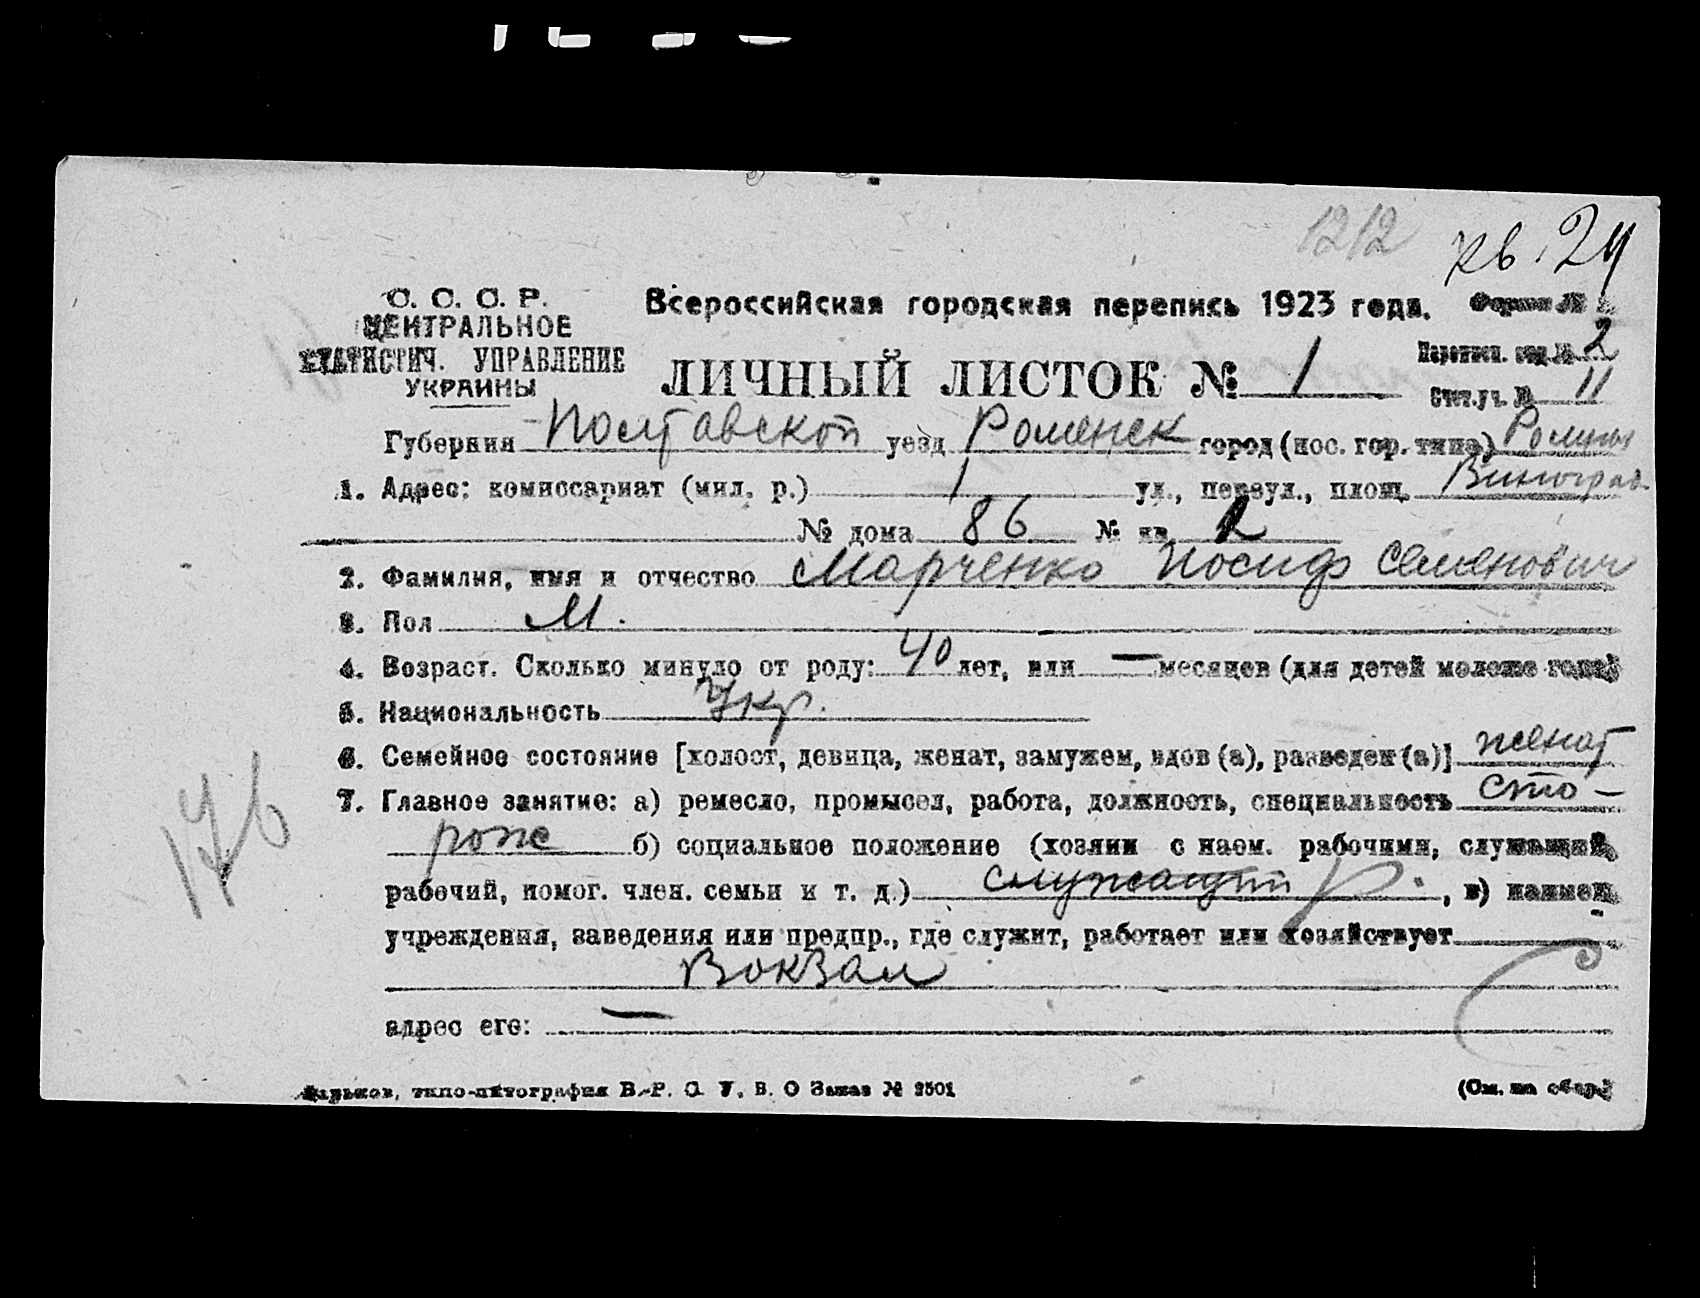 1212 кв. 24
С. С. С. Р.
ЦЕНТРАЛЬНОЕ
СТАТИСТИЧ. УПРАВЛЕНИЕ
УКРАИНЫ
Всероссийская городская перепись 1923 года. Форма №
ЛИЧНЫЙ ЛИСТОК № 1
Переписн. отд. № 2
Счет. уч. № 11
Губерния Полтавской уезд Роменск город (пос. гор. типа) Ромны
1. Адрес: комиссариат (мил. р.) 1 ул., переул., площ. Виноград.
№ дома 86 № кв 2
2. Фамилия, имя и отчество Марченко Иосиф Семенович
3. Пол М.
4. Возраст. Сколько минуло от роду: 40 лет, или — месяцев (для детей моложе года)
5. Национальность Укр.
6. Семейное состояние [холост, девица, женат, замужем, вдов (а), разведен (а)] женат
7. Главное занятие: а) ремесло, промысел, работа, должность, специальность сто-
рож б) социальное положение (хозяин с наем. рабочими, служащий,
рабочий, помог. член. семьи и т. д.) служащий р. , в) наимен.
учреждения, заведения или предпр., где служит, работает или хозяйствует
Вокзал
адрес его: —
176
Харьков, типо-литография В.-Р. С. У. В. О Заказ № 2501 (См. на обор.)